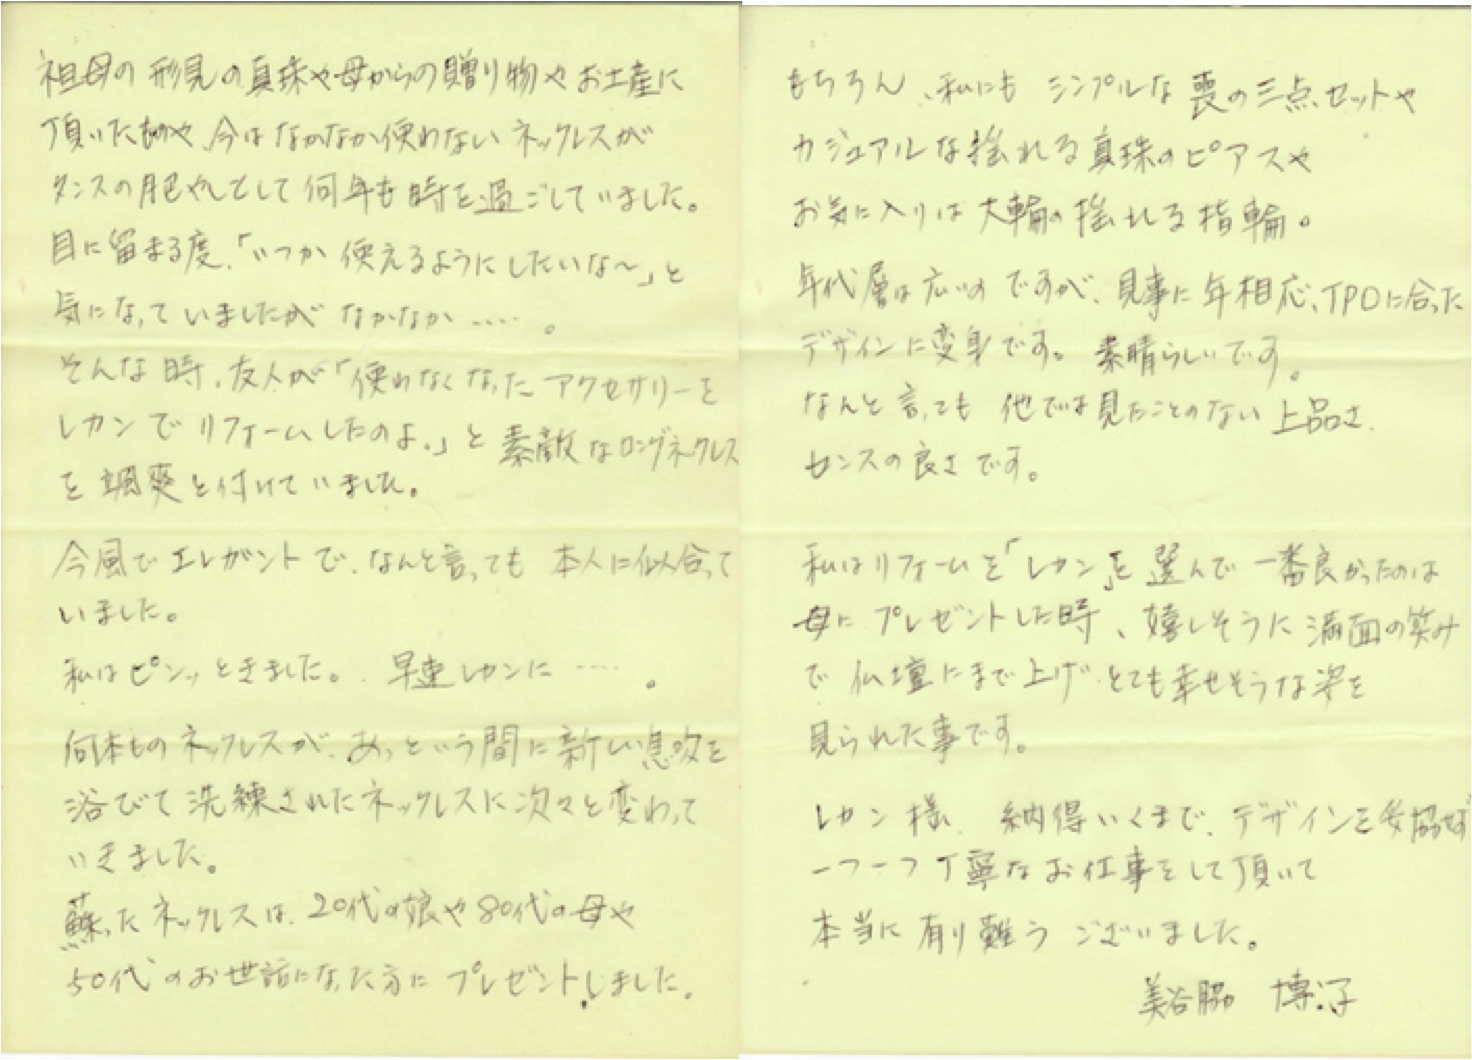 祖母の形見の真珠や母からの贈り物やお土産に
頂いた物や、今はなかなか使わないネックレスが
タンスの肥やしとして何年も時を過ごしていました。
目に留まる度、「いつか使えるようにしたいな〜」と
気になっていましたがなかなか……。
そんな時、友人が「使わなくなったアクセサリーを
レカンでリフォームしたのよ。」と素敵なロングネックレス
を颯爽と付けていました。
今風でエレガントで、なんと言っても本人に似合って
いました。
私はピンッときました。早速レカンに……。
何本ものネックレスが、あっという間に新しい息吹を
浴びて洗練されたネックレスに次々と変わって
いきました。
蘇ったネックレスは、20代の娘や80代の母や
50代のお世話になった方にプレゼントしました。
もちろん、私にもシンプルな喪の三点セットや
カジュアルな揺れる真珠のピアスや
お気に入りは大輪の揺れる指輪。
年代層は広いのですが、見事に年相応、TPOに合った
デザインに変身です。素晴らしいです。
なんと言っても他では見たことのない上品さ、
センスの良さです。
私はリフォームを「レカン」を選んで一番良かったのは
母にプレゼントした時、嬉しそうに満面の笑み
で仏壇にまで上げ、とても幸せそうな姿を
見られた事です。
レカン様、納得いくまで、デザインを妥協せず
一つ一つ丁寧なお仕事をして頂いて
本当に有り難うございました。
美谷脇 博子